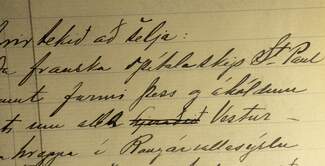 tekið að telja:
franska spítalaskips St Paul
farmi þess og áhöldum
um allt Vestur-
hreppa í Rangárvallasýslu